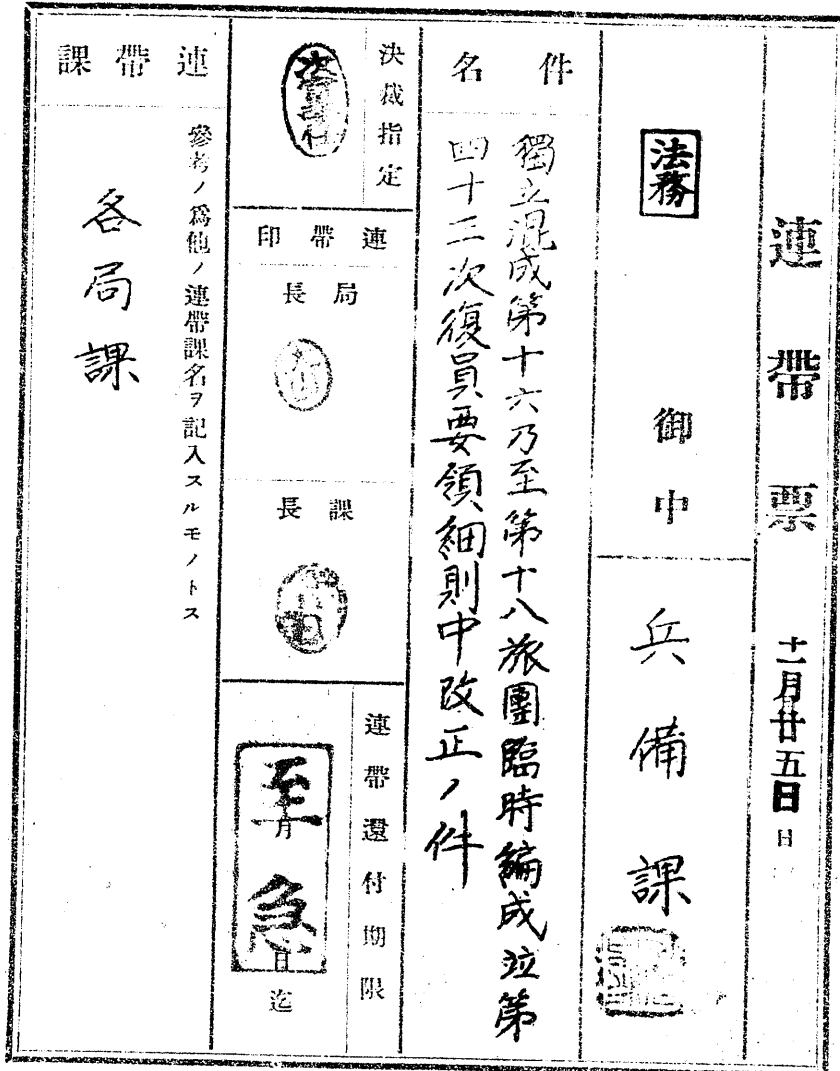 連帶票
十一月廿五日
日
法務
御中
兵備課
件名
獨立混成第十六乃至第十八旅團臨時編成竝第
四十二次復員要領細則中改正ノ件
決裁指定
連帶印
局長
課長
連帶還付期限
至急
月
日
迄
連帶課
參考ノ爲他ノ連帶課名ヲ記入スルモノトス
各局課